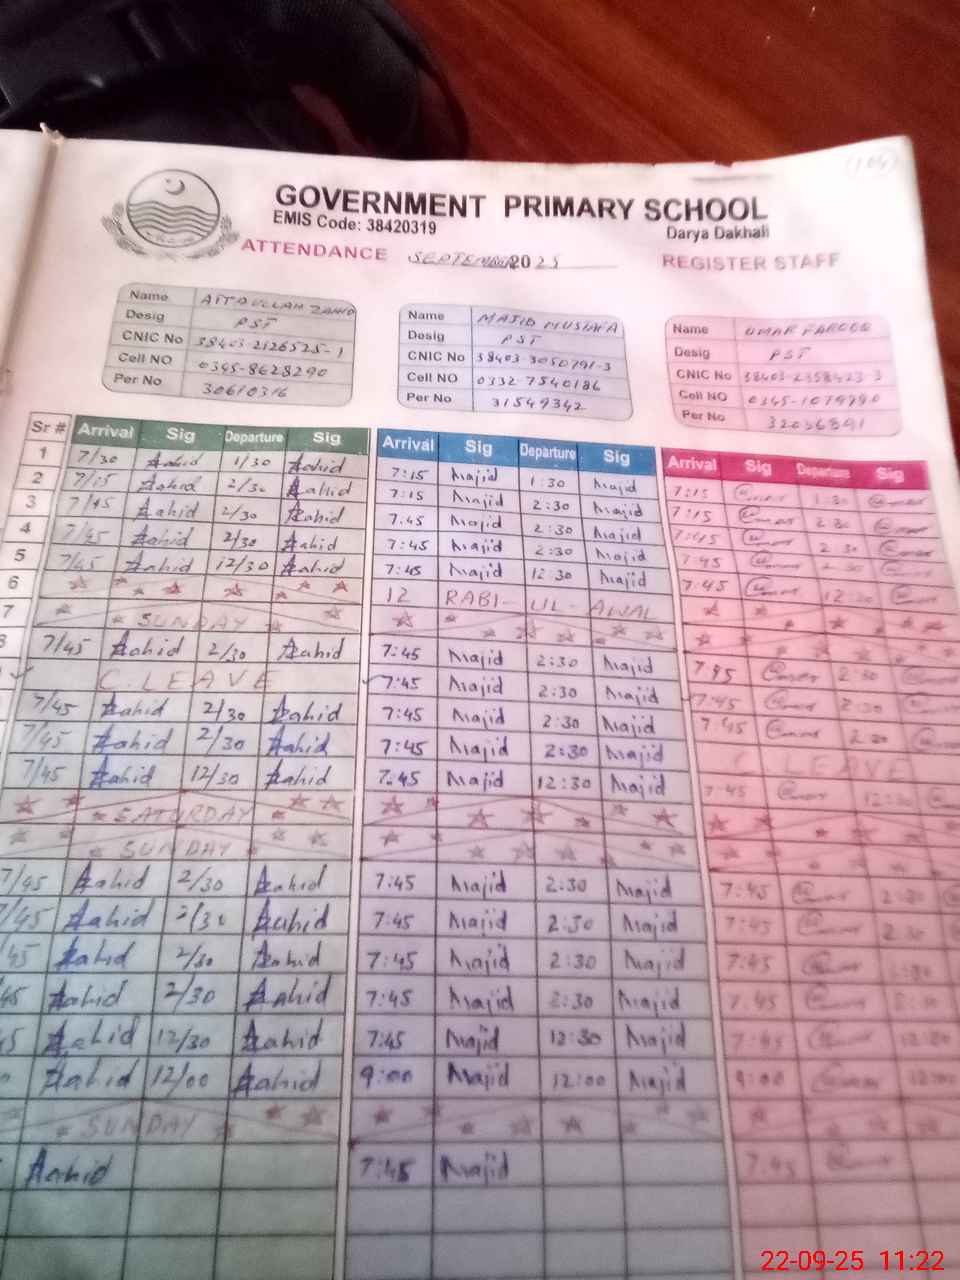 GOVERNMENT PRIMARY SCHOOL
EMIS Code: 38420319
Darya Dakhali
ATTENDANCE SEPTEMBER 2025 REGISTER STAFF
Name ZAHID
Desig PST
CNIC No 38403-2126525-1
Cell NO 0345-8628290
Per No 30610316
Name MAJID MUSTAFA
Desig PST
CNIC No 38403-3050791-3
Cell NO 0332-7540186
Per No 31549342
Name UMAR FAROOQ
Desig PST
CNIC No 38403-2358423-3
Cell NO 0345-1079790
Per No 32036891
Sr # Arrival Sig Departure Sig Arrival Sig Departure Sig Arrival Sig Departure Sig
1 7/30 Zahid 1/30 Zahid 7:15 Majid 1:30 Majid 7:15 Umar 1:30 Umar
2 7/15 Zahid 2/30 Zahid 7:15 Majid 2:30 Majid 7:15 Umar 2:30 Umar
3 7/45 Zahid 2/30 Zahid 7:45 Majid 2:30 Majid 7:45 Umar 2:30 Umar
4 7/45 Zahid 2/30 Zahid 7:45 Majid 2:30 Majid 7:45 Umar 2:30 Umar
5 7/45 Zahid 12/30 Zahid 7:45 Majid 12:30 Majid 7:45 Umar 12:30 Umar
6 12 RABI-UL-AWAL
7 SUNDAY
8 7/45 Zahid 2/30 Zahid 7:45 Majid 2:30 Majid 7:45 Umar 2:30 Umar
C. LEAVE 7:45 Majid 2:30 Majid 7:45 Umar 2:30 Umar
7/45 Zahid 2/30 Zahid 7:45 Majid 2:30 Majid 7:45 Umar 2:30 Umar
7/45 Zahid 2/30 Zahid 7:45 Majid 2:30 Majid C. LEAVE
7/45 Zahid 12/30 Zahid 7:45 Majid 12:30 Majid 7:45 Umar 12:30
SATURDAY
SUNDAY
7/45 Zahid 2/30 Zahid 7:45 Majid 2:30 Majid 7:45 Umar 2:30
7/45 Zahid 2/30 Zahid 7:45 Majid 2:30 Majid 7:45 Umar 2:30
45 Zahid 2/30 Zahid 7:45 Majid 2:30 Majid 7:45 Umar 2:30
45 Zahid 2/30 Zahid 7:45 Majid 2:30 Majid 7:45 Umar 2:30
45 Zahid 12/30 Zahid 7:45 Majid 12:30 Majid 7:45 Umar 12:30
Zahid 12/00 Zahid 9:00 Majid 12:00 Majid 9:00 Umar 12:00
SUNDAY
Zahid 7:45 Majid 7:45 Umar
22-09-25 11:22